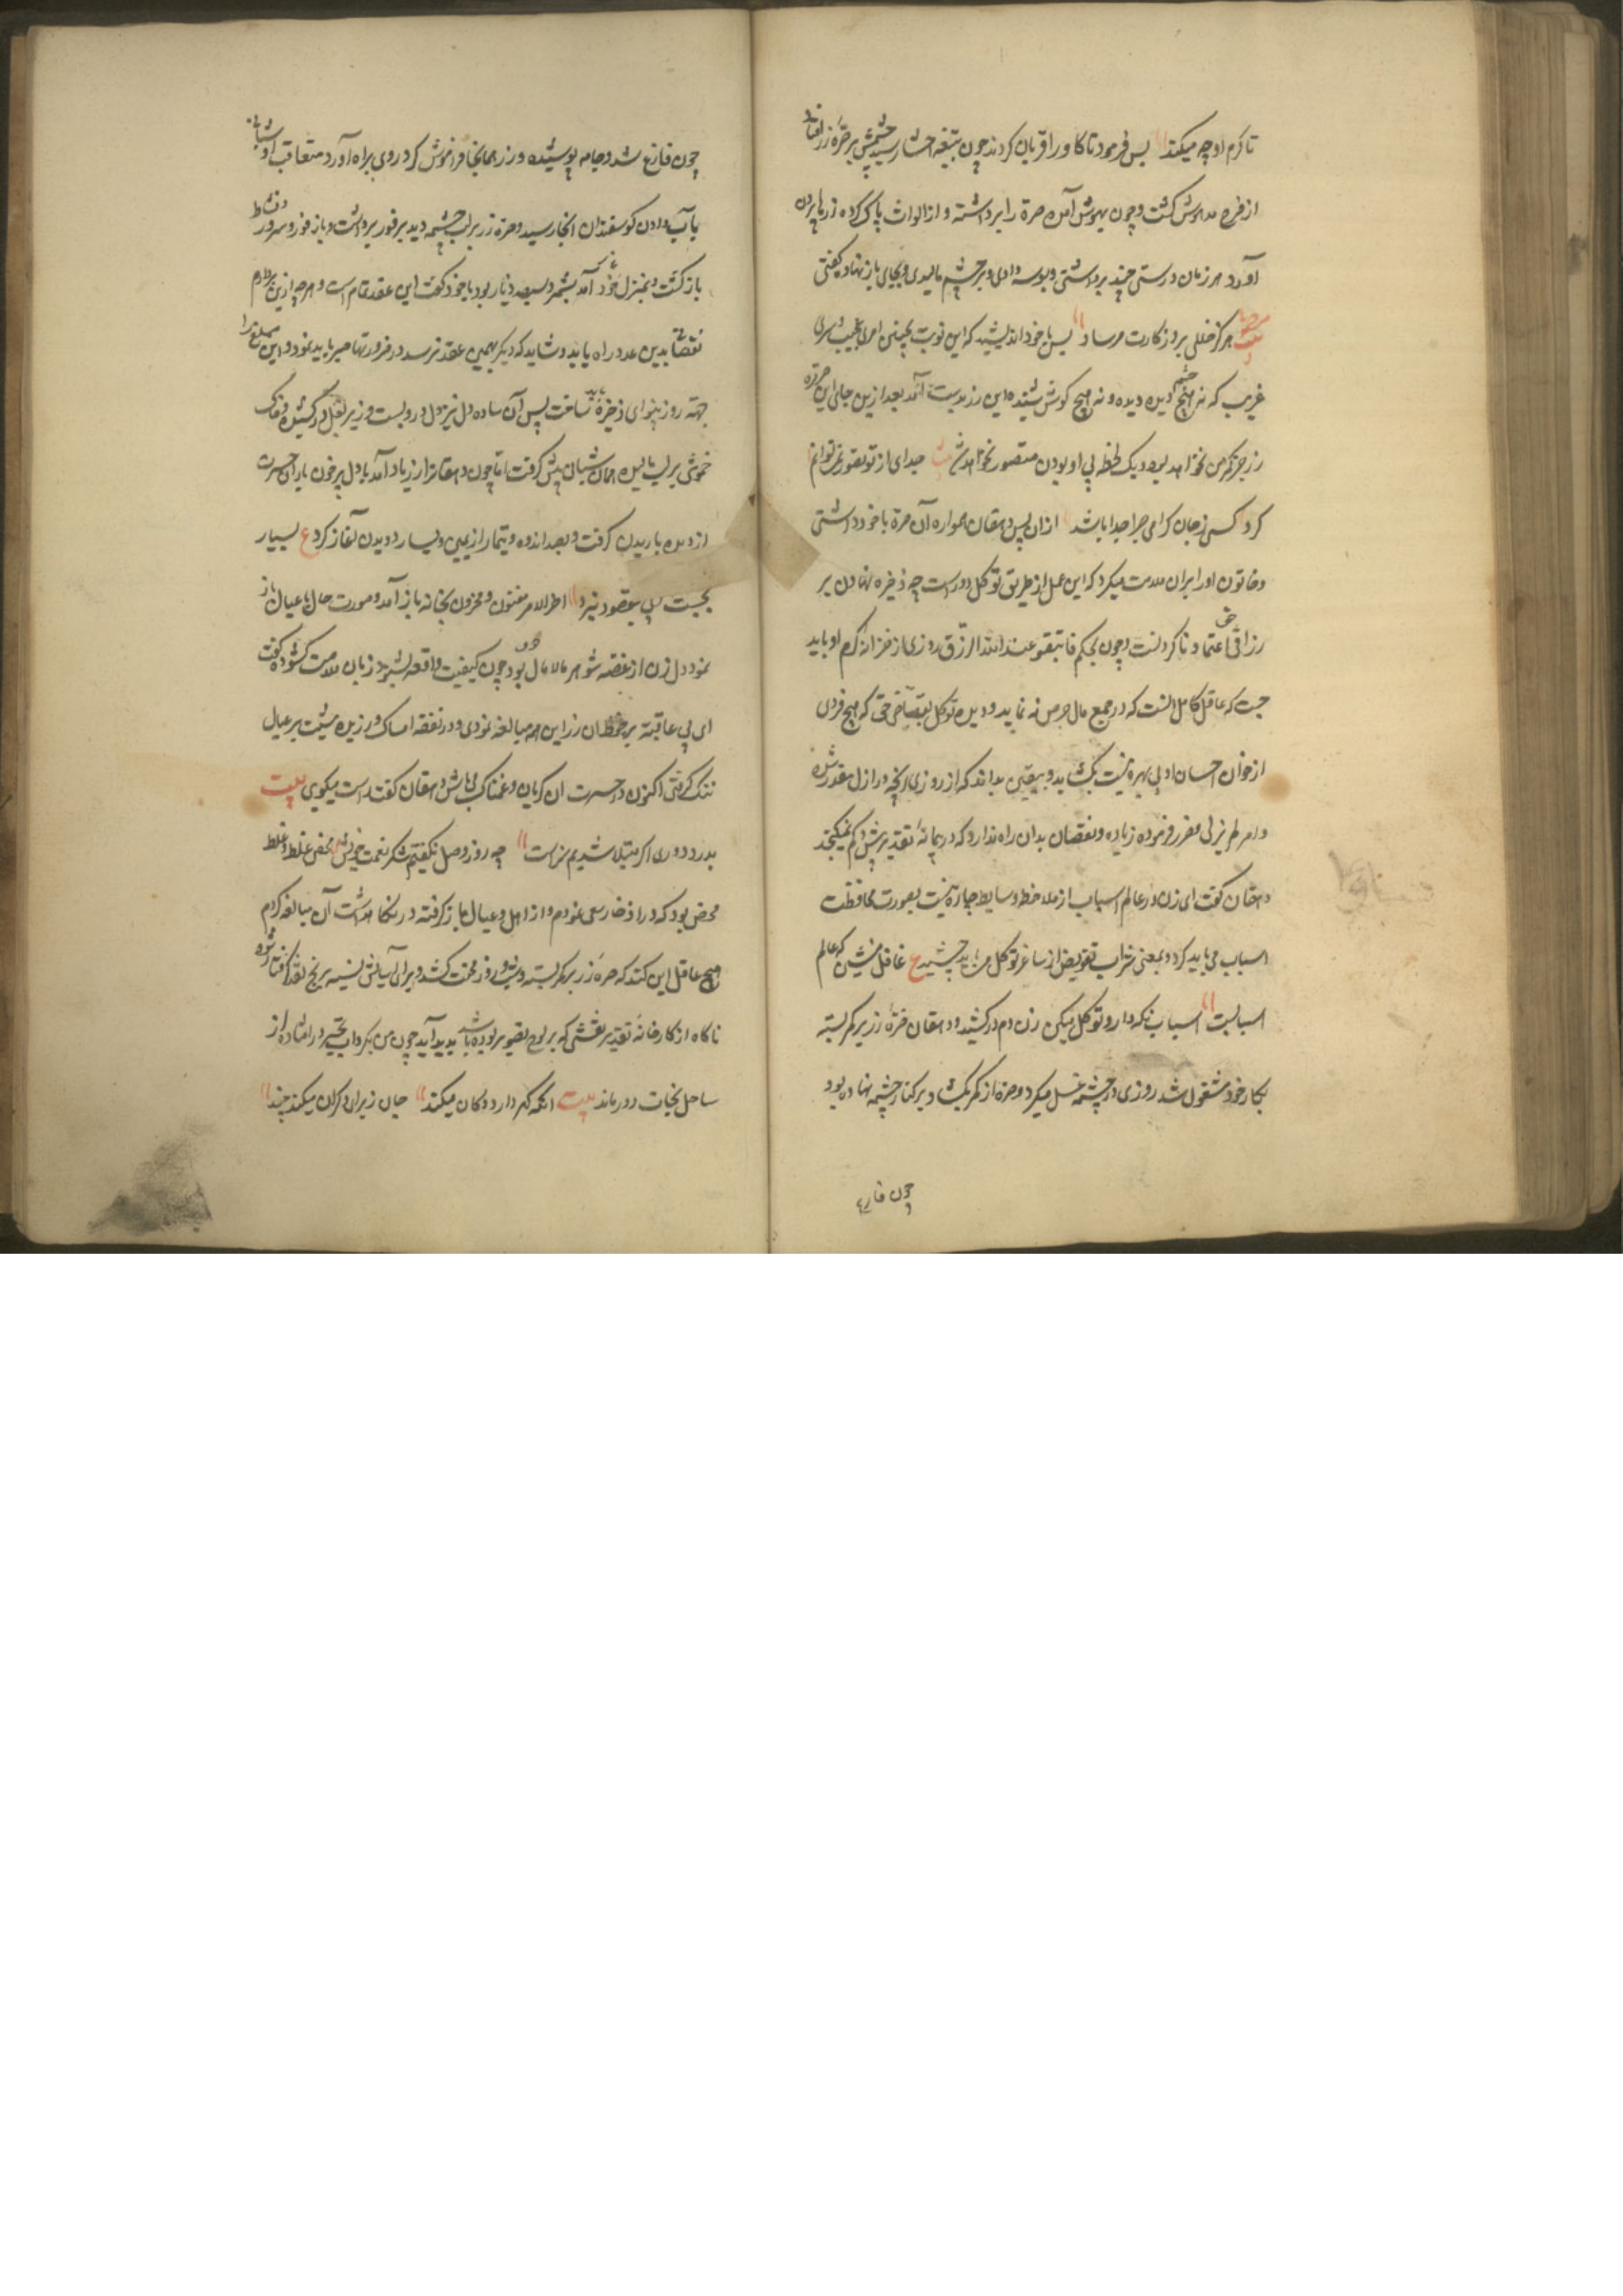 تا کرم او چه میکند پس فرمود تا کاو را قربان کردند چون بتبغه احشا رسید چشمش بر صرّه زر افتاد
از فرح مدهوش کشت و چون بهوش آمد صره را برداشته و از الواث پاک کرده زرها بیرون
آورد هر زمان درستی چند برداشتی و بوسه دادی و بر چشم مالیدی و بجای باز نهاد کفتی
هرکز خللی بروزکارت مرساد پس با خود اندیشید که این نوبت بچنین امری عجیب و سری
غریب که نه هیچ چشم دیده و نه هیچ کوش شنیده این زر بدست آمد بعد ازین جای این صره
زر جز کمر من نخواهد بود و یک لحظه بی او بودن متصور نخواهد شد بیت جدای از تو تصور نمی توانم
کرد کسی ز جان کرامی چرا جدا باشد ازان پس دهقان همواره آن صره با خود داشتی
و خاتون او را بران ملامت میکرد که این عمل از طریق توکل دور است چه ذخیره نهادن بر
رزاقی حق اعتماد ناکردنست و چون بحکم فابتغوا عند الله الرّزق روزی از خزانه کرم او باید
جست که عاقل کامل انست که در جمع مال حرص نه نماید و دیده توکل حق که هیچ فردی
از خوان احسان او بی بهره نیست بکشاید و بیقین بداند که از روزی انچه در ازل مقدر شده
و امر لم یزلی مقرر فرموده زیاده و نقصان بدان راه ندارد که در پیمانهٔ تقدیر بیش و کم نمیکنجد
دهقان کفت ای زن در عالم اسباب از ملاحظه وسایط چاره نیست بصورت محافظت
اسباب می باید کرد و بمعنی شراب تفویض از ساغر توکل می باید چشید ع غافل منشین که عالم
اسبابست اسباب نکه دار و توکل میکن زن دم درکشید و دهقان صرّه زر بر کمر بسته
بکار خود مشغول شد روزی در چشمه غسل میکرد و صره از کمر بکشاد و بر کنار چشمه نهاده بود
چون فارغ
چون فارغ شد و جامه پوشیده و زر همانجا فراموش کرد روی براه آورد متعاقب او شبانی
بآب دادن کوسفندان انجا رسید و صره زر بر لب چشمه دید بر فور برداشت و باز فور و سرور و نشاط
باز کشت و بمنزل خود آمد بشمرد سیصد دینار بود با خود کفت این عقد تمام است و هر چه ازین بردارم
نقصان بدین عدد راه یابد و شاید که دیکر بهمین عقد نرسد در ضرورتها صبر باید نمود و این مبلغ را
جهته روز بینوای ذخیره باید ساخت پس آن ساده دل نیز دل درو بست و زیر بغل درکشیده
خموشی بر لب مالیده همان شبان پیش کرفت اما چون دهقان را از زر یاد آمد با دل پر خون باران حسرت
از دیده باریدن کرفت و بصد اندوه و تیمار از یمین و یسار دویدن آغاز کرد ع بسیار
بجست پی بمقصود نبرد اخر الامر مغبون و محزون بخانه باز آمد و صورت حال با عیال باز
نمود دل زن از غصه شوهر مالامال بود چون کیفیت واقعه بشنود زبان ملامت کشوده کفت
ای بی عاقبه بر حفظ ان زر این همه مبالغه نمودی و در نفقه امساک ورزیده معیشت بر عیال
تنک کرفتی اکنون در حسرت ان کریان و غمناک می باش دهقان کفت راست میکوی بیت
بدرد دوری اکر مبتلا شدیم سزاست چه روز وصل نکفتیم شکر نعمت خویش محض غلط و غلط
محض بود که در اذخار سعی نمودم و از اهل و عیال باز کرفته در نکاهداشت آن مبالغه کردم
هیچ عاقل این کند که صرهٔ زر بر کمر بسته و شب و روز محنت کشد و برای آسایش نسیه برنج نقد کرفتار شود
ناکاه از کارخانهٔ تقدیر نقشی که بر لوح تصویر نبوده باشد پدید آید چون من بکرداب تحیر در افتاده از
ساحل نجات دور ماند بیت انکه کهر دارد و کان میکند جان ز برای دکران میکند